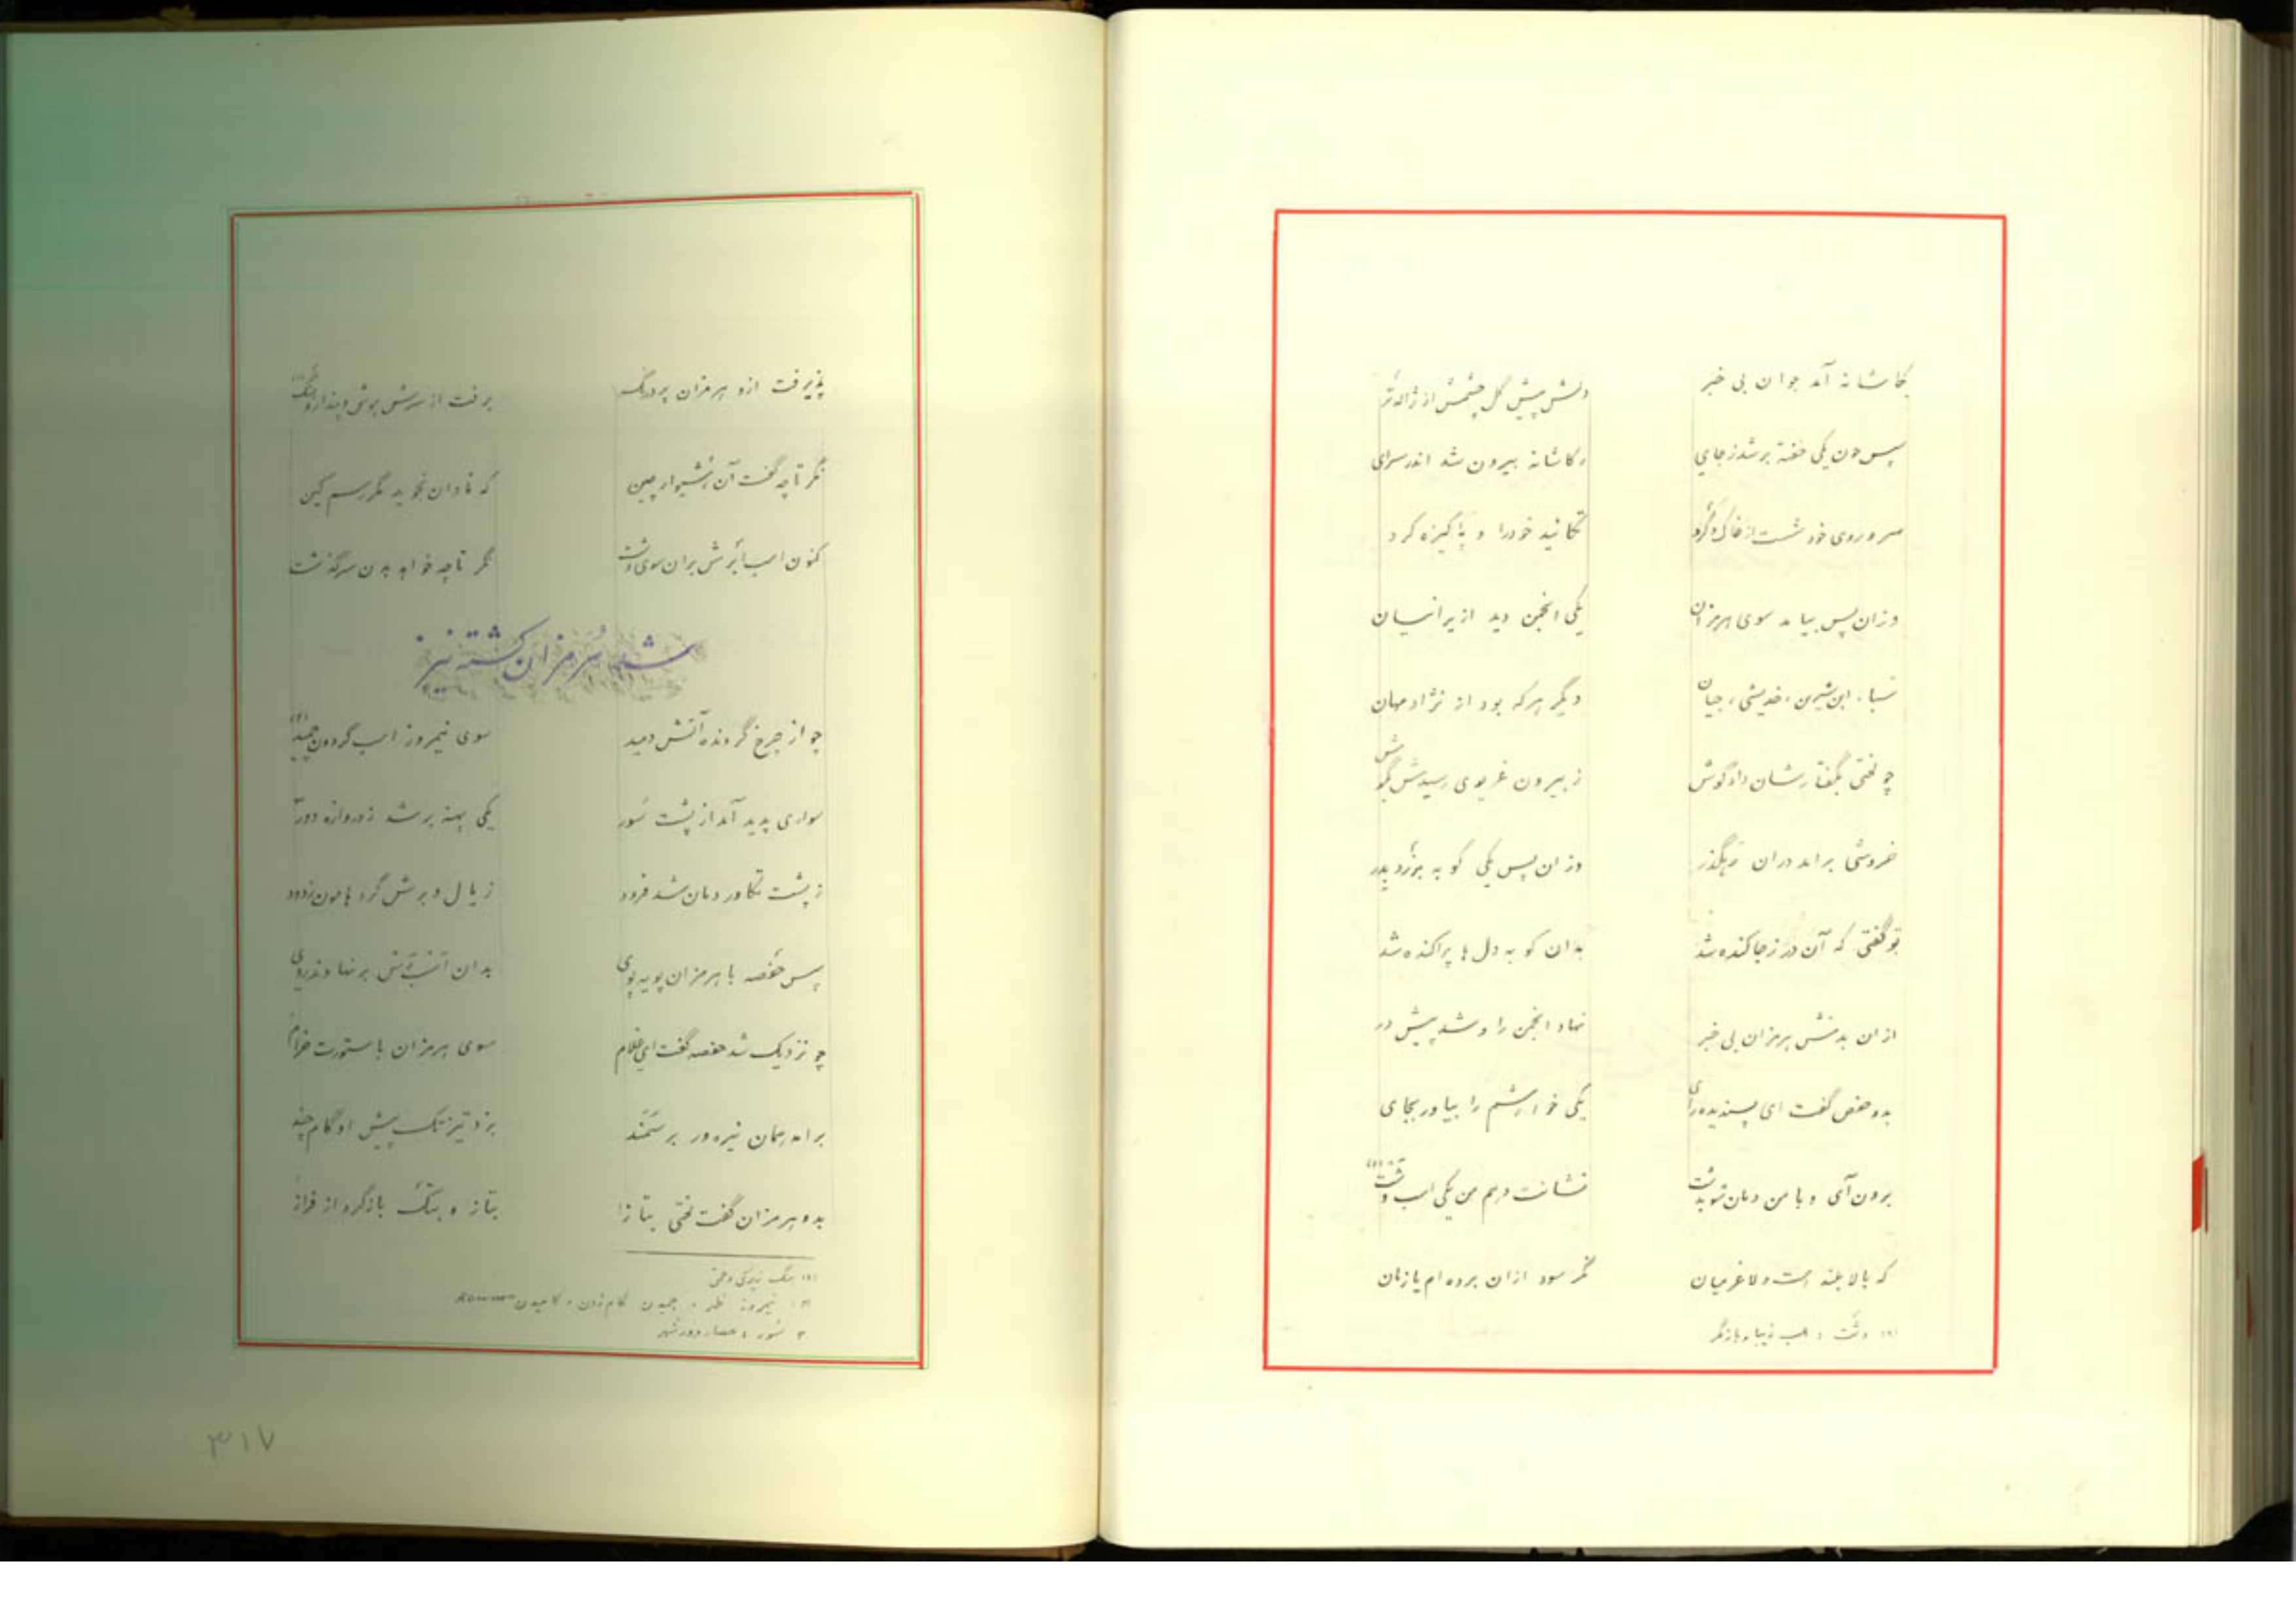 بکاشانه آمد جوان بی خبر دلش پیش گل چشمش از ژاله تر
سپس چون یکی خفته بر شد ز جای ز کاشانه بیرون شد اندر سرای
سر و روی خود شست از خاک و گرد تکانید خود را و پاکیزه کرد
وزان پس بیامد سوی هرمزان یکی انجمن دید از ایرانیان
نسبا، ابن شیرین، خدیشی، جیان دگر هر که بود از نژاد مهان
چو لختی بگفتارشان داد گوش ز بیرون غریوی رسیدش بگوش
خروشی برآمد دران رهگذر وزان پس یکی کوبه بر زد بدر
تو گفتی که آن در ز جا کنده شد بدان کوبه دل ها پراکنده شد
ازان بدمنش هرمزان بی خبر نهاد انجمن را و شد پیش در
بدو حفص گفت ای پسندیده رای یکی خواهشم را بیاور بجای
برون آی و با من دمان شو بدشت نشانت دهم من یکی اسب وشت (۱)
که بالا بلند است و لاغر میان مگر سود ازان برده ام یا زیان
(۱) وشت : اسب زیبا و
پذیرفت ازو هرمزان بی درنگ برفت از سرش هوش و پندار و هنگ (۱)
نگر تا چه گفت آن هشیوار چین که نادان نجوید مگر رسم کین
کنون اسب ابرش بران سوی دشت نگر تا چه خواهد بدن سرگذشت
شدن هرمزان کشته نیز
چو از چرخ گردنده آتش دمید سوی نیمروز اسب گردون چمید (۲)
سواری پدید آمد از پشت سور یکی پهنه بر شد ز دروازه دور
ز پشت تکاور دمان شد فرود ز یال و برش گرد هامون زدود
پس حفصه با هرمزان پویه پوی بدان بر نهادند روی
چو نزدیک شد حفصه گفت ای غلام سوی هرمزان با ستورت خرام
برآمد همان نیزه ور بر سمند بزد تیزتک پیش او گام چند
بدو هرمزان گفت لختی بتاز بتاز و بتک بازگرد از فراز
(۱) هنگ زیرکی و
(۲) نیمروز ظهر ، چمیدن گام زدن ،
۳ سور : حصار دور شهر
۳۱۷